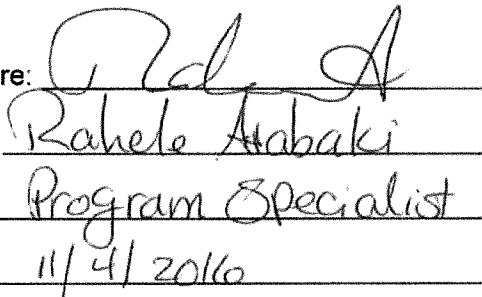 re:
Rahele Atabaki
Program Specialist
11/4/2016